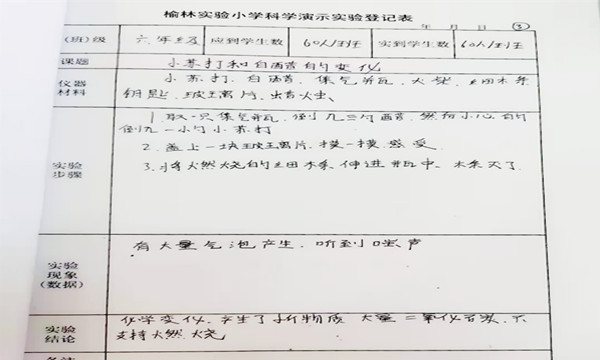 榆林实验小学科学演示实验登记表
年 月 日 ③
(班)级 六年级 应到学生数 60人/班 实到学生数 60人/班
课题 小苏打和白醋的变化
仪器材料 小苏打、白醋、集气瓶、火柴、细木条
钥匙、玻璃片、蜡烛、
1.取一只集气瓶,倒几三勺醋,然后小心的
倒几一小勺小苏打
实验步骤 2.盖上一块玻璃片,摸一摸感受
3.将燃烧的细木条伸进瓶中,木条灭了
实验现象(数据) 有大量气泡产生,听到 声
实验结论 化学变化,产生了新物质 大量二氧化 不
支持燃烧
备注